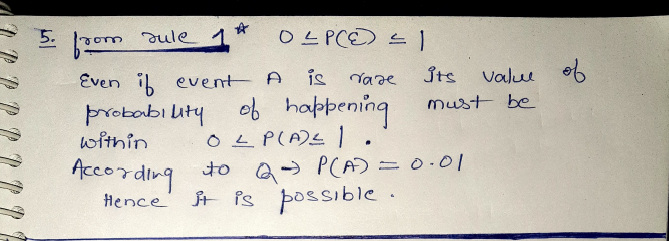 5. from rule 1* 0 ≤ P(E) ≤ 1
Even if event A is rare its value of
probability of happening must be
within 0 ≤ P(A) ≤ 1.
According to Q → P(A) = 0.01
Hence it is possible.